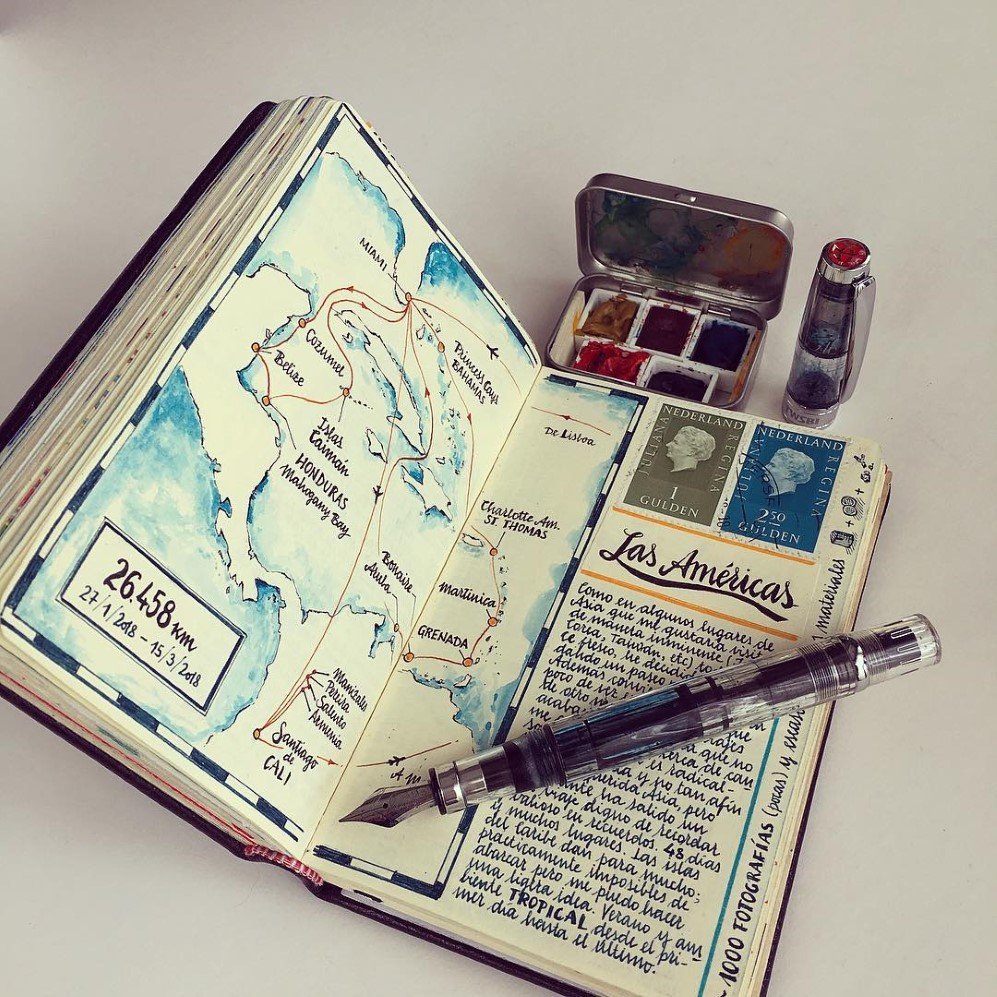 MIAMI
Cozumel
Belize
Islas
Caimán
HONDURAS
Mahogany Bay
Princess Cays
BAHAMAS
26.458 km
27/1/2018 - 15/3/2018
Bonaire
Aruba
Manizales
Pereira
Salento
Armenia
Santiago
de
CALI
De Lisboa
Charlotte Am.
ST. THOMAS
Martinica
GRENADA
A
NEDERLAND
JULIANA
REGINA
1
GULDEN
NEDERLAND
JULIANA
REGINA
2.50
GULDEN
Las Américas
Como en algunos lugares de
Asia que me gustaría visi
de manera inminente
Corea, Taiwan, etc)
ce fresco, he decid
gando un paseo
Además con
poco de ver
acab
de otro
me
que
cafés
erca de can
es radical-
y no tan afín
querida Asia, pero
ente ha salido un
viaje digno de recordar
valioso en recuerdos. 48 días
y muchos lugares. Las islas
del Caribe dan para mucho.
prácticamente imposibles de
abarcar pero me puedo hacer
una ligera idea. Verano y am
biente TROPICAL desde el pri-
mer día hasta el último.
1000 FOTOGRAFÍAS (pocas) y escasos materiales
TWSBI